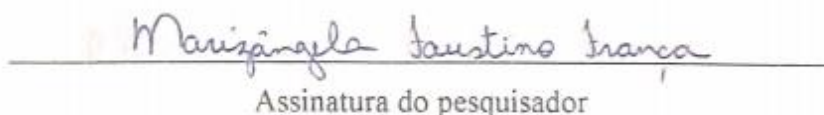 Marizângela Faustino França
Assinatura do pesquisador